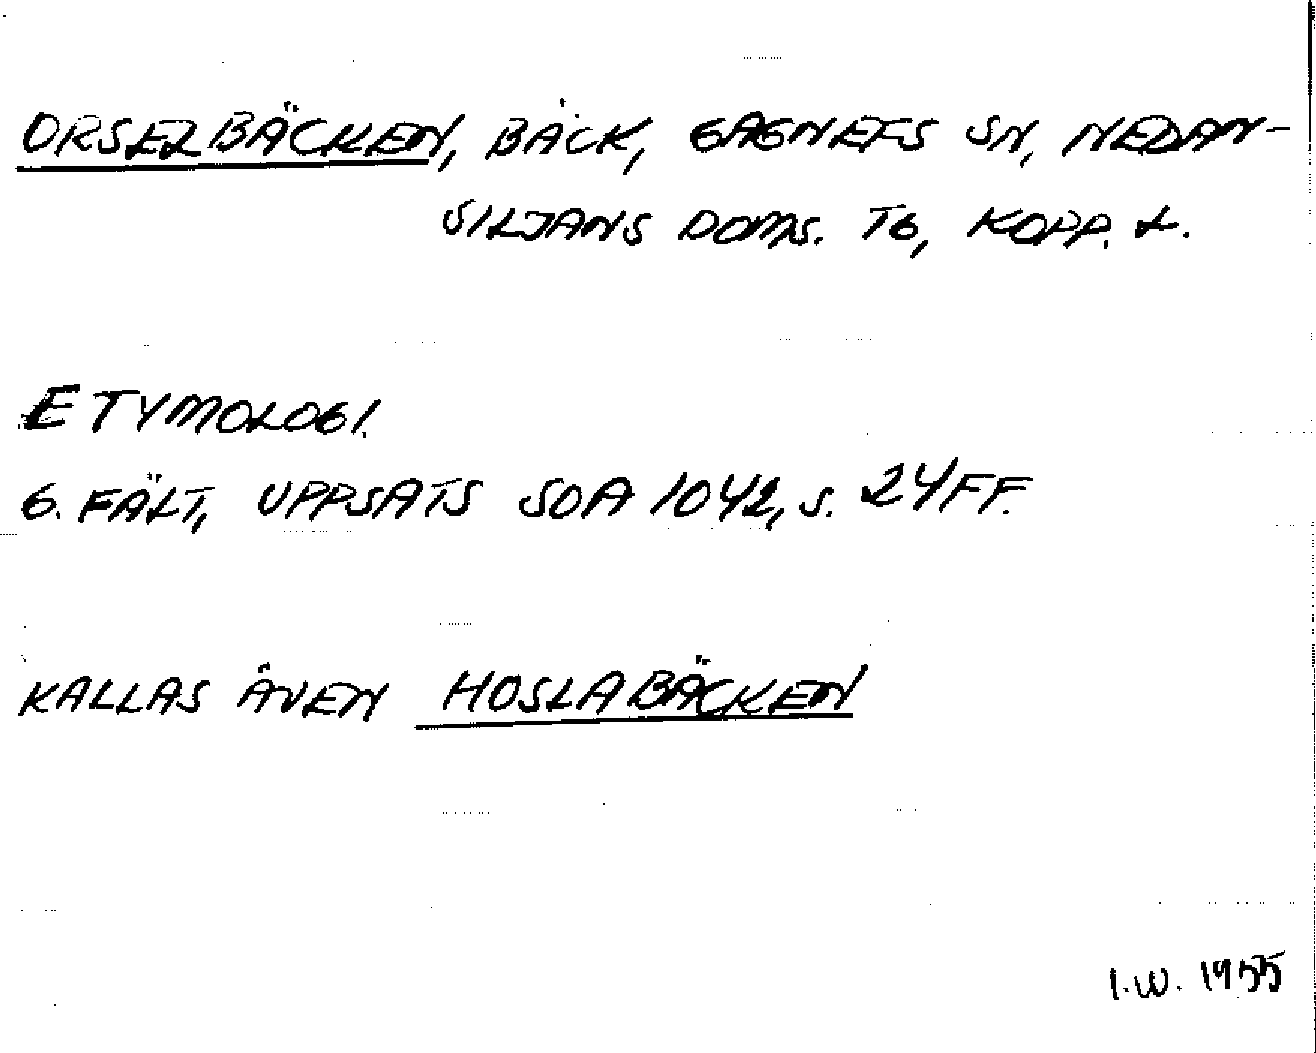 ORSERBÄCKEN, BÄCK, GAGNEFS SN, NEDAN-
SILJANS DOMS. TG, KOPP. L.
ETYMOLOGI.
G. FÄLT, UPPSATS SOA 1042, S. 24FF.
KALLAS ÄVEN HOSLABÄCKEN
I.W. 1955